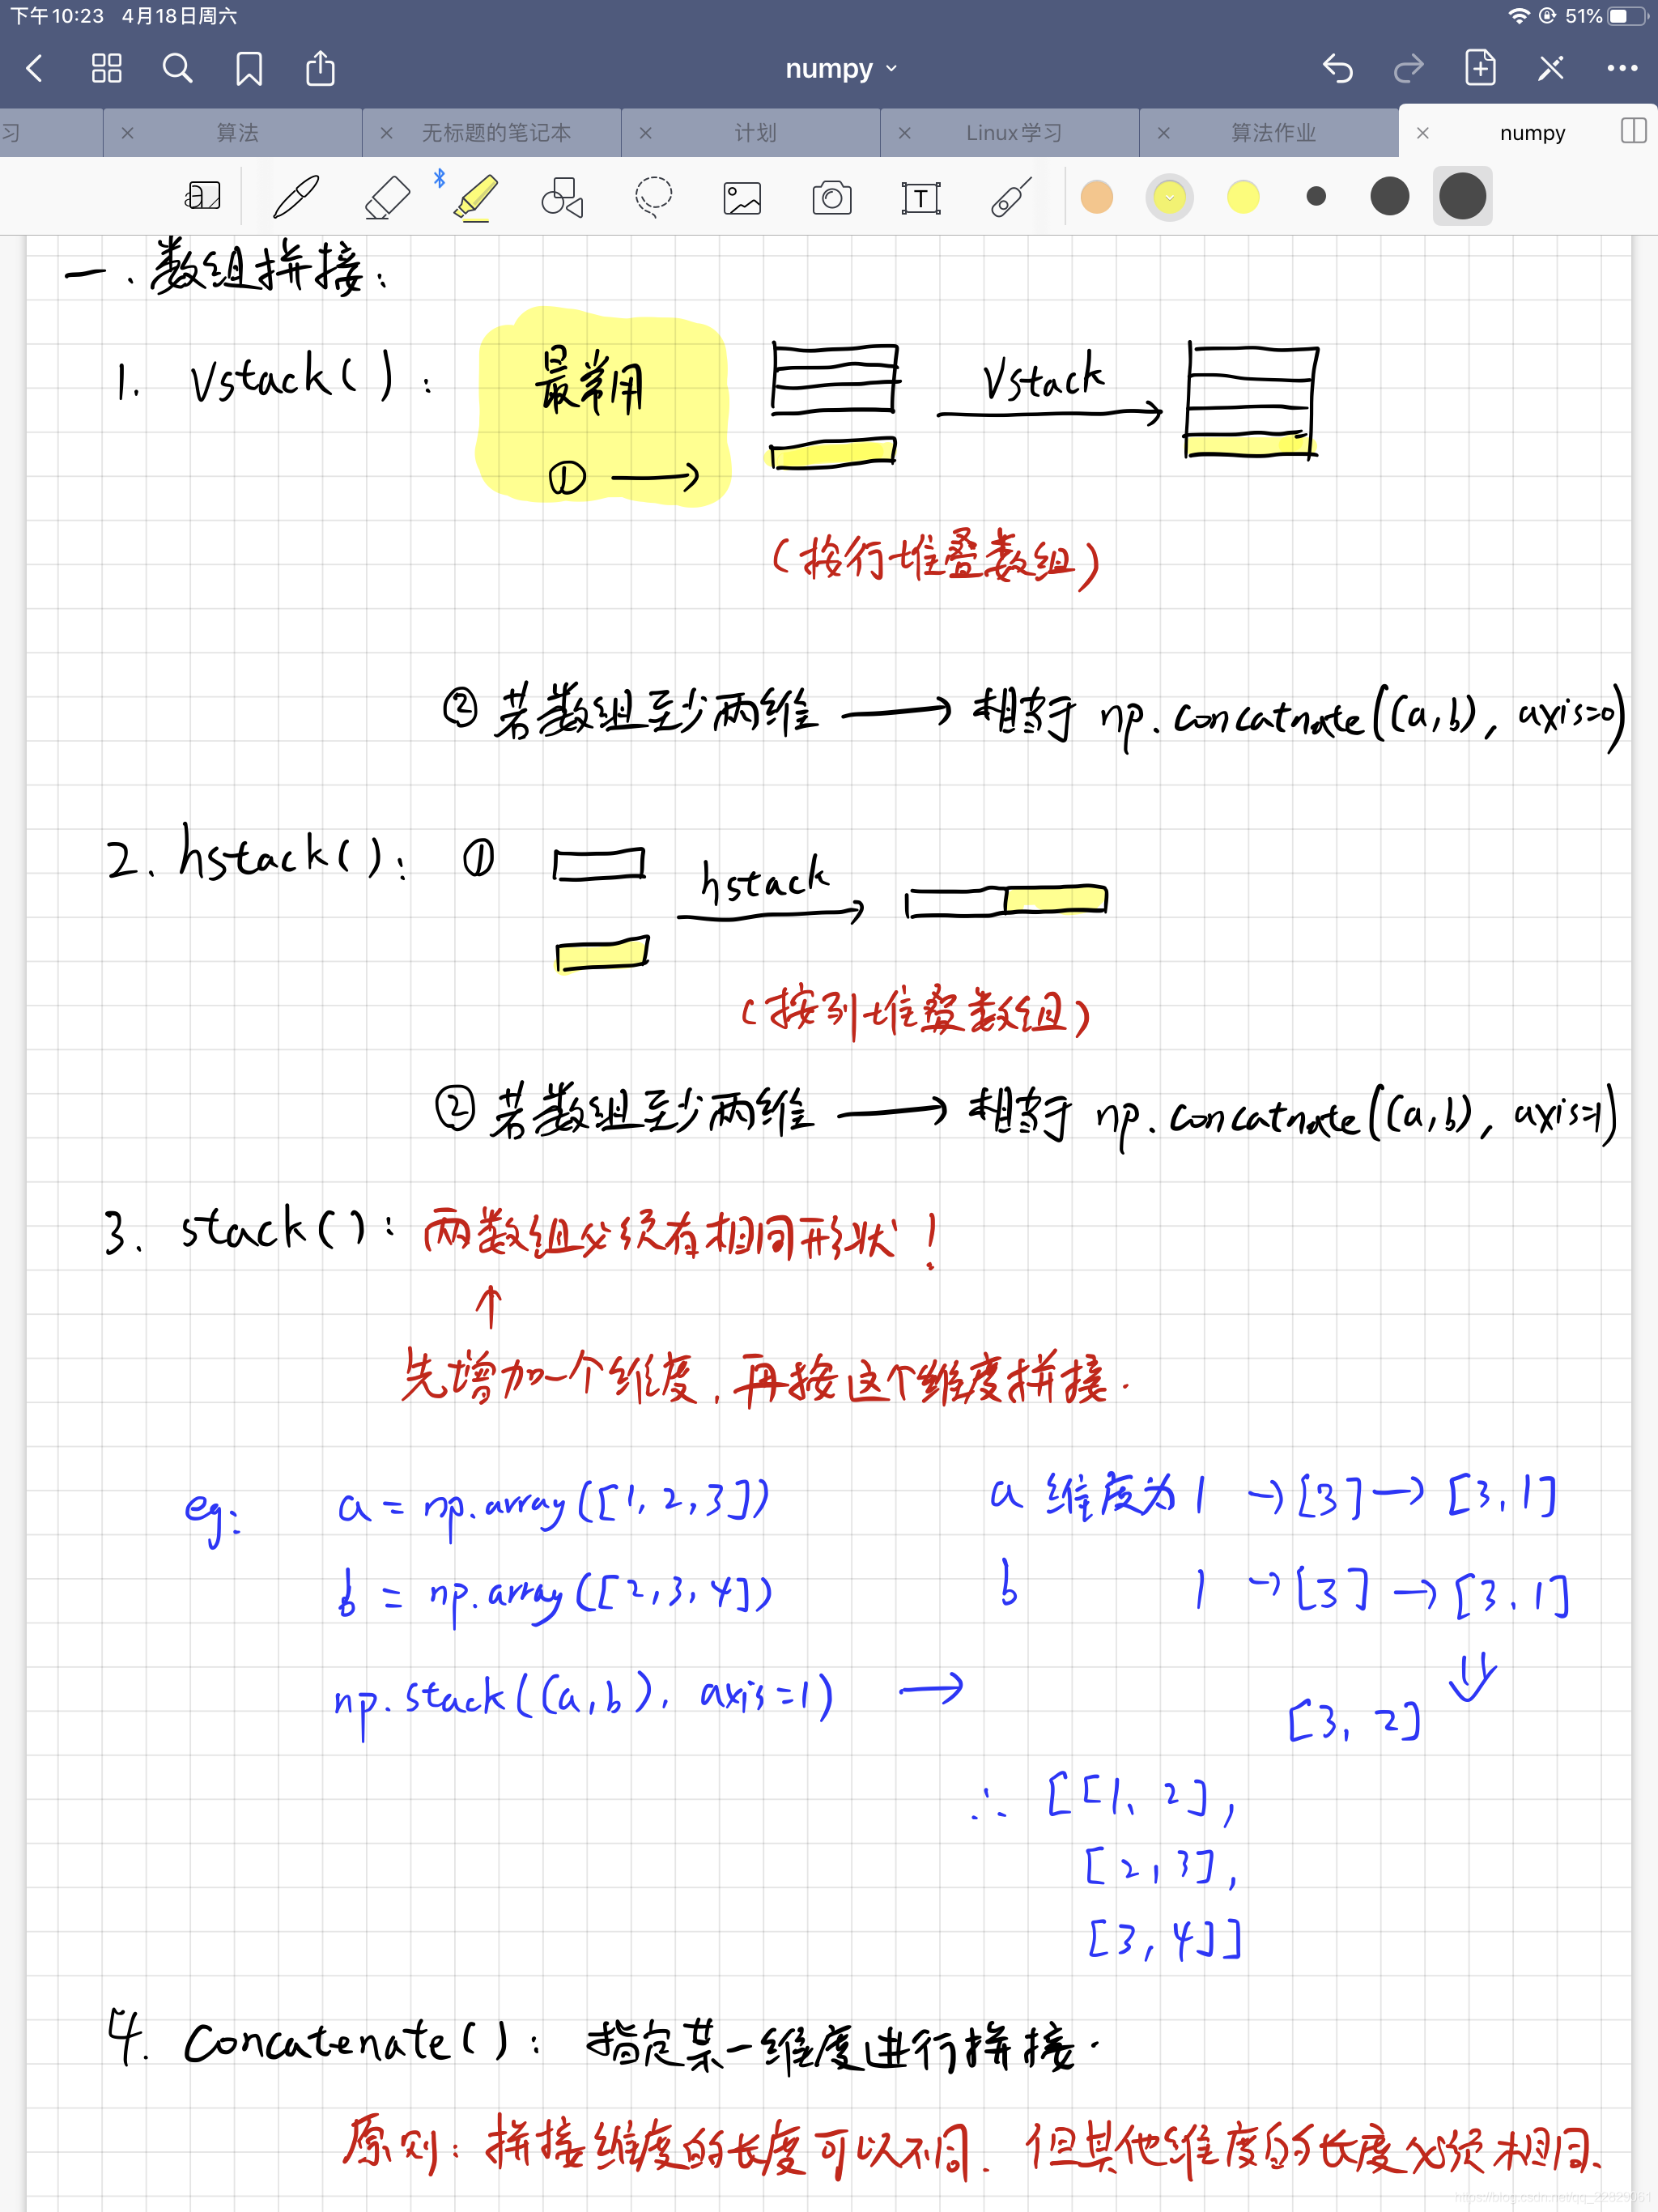 下午10:23 4月18日周六 51%
numpy
习 算法 无标题的笔记本 计划 Linux学习 算法作业 numpy
一.数组拼接:
1. Vstack():
最常用
① →
Vstack
(按行堆叠数组)
② 若数组至少两维 → 相当于 np.concatnate((a,b), axis=0)
2. hstack(): ①
hstack
(按列堆叠数组)
② 若数组至少两维 → 相当于 np.concatnate((a,b), axis=1)
3. stack(): 两数组必须有相同形状!
↑
先增加一个维度,再按这个维度拼接.
eg: a = np.array([1,2,3]) a 维度为 1 → [3] → [3,1]
b = np.array([2,3,4]) b 1 → [3] → [3,1]
np.stack((a,b), axis=1) → [3, 2]
∴ [[1, 2],
[2,3],
[3,4]]
4. Concatenate(): 指定某一维度进行拼接.
原则: 拼接维度的长度可以不同. 但其他维度的长度必须相同.
https://blog.csdn.net/qq_22829061